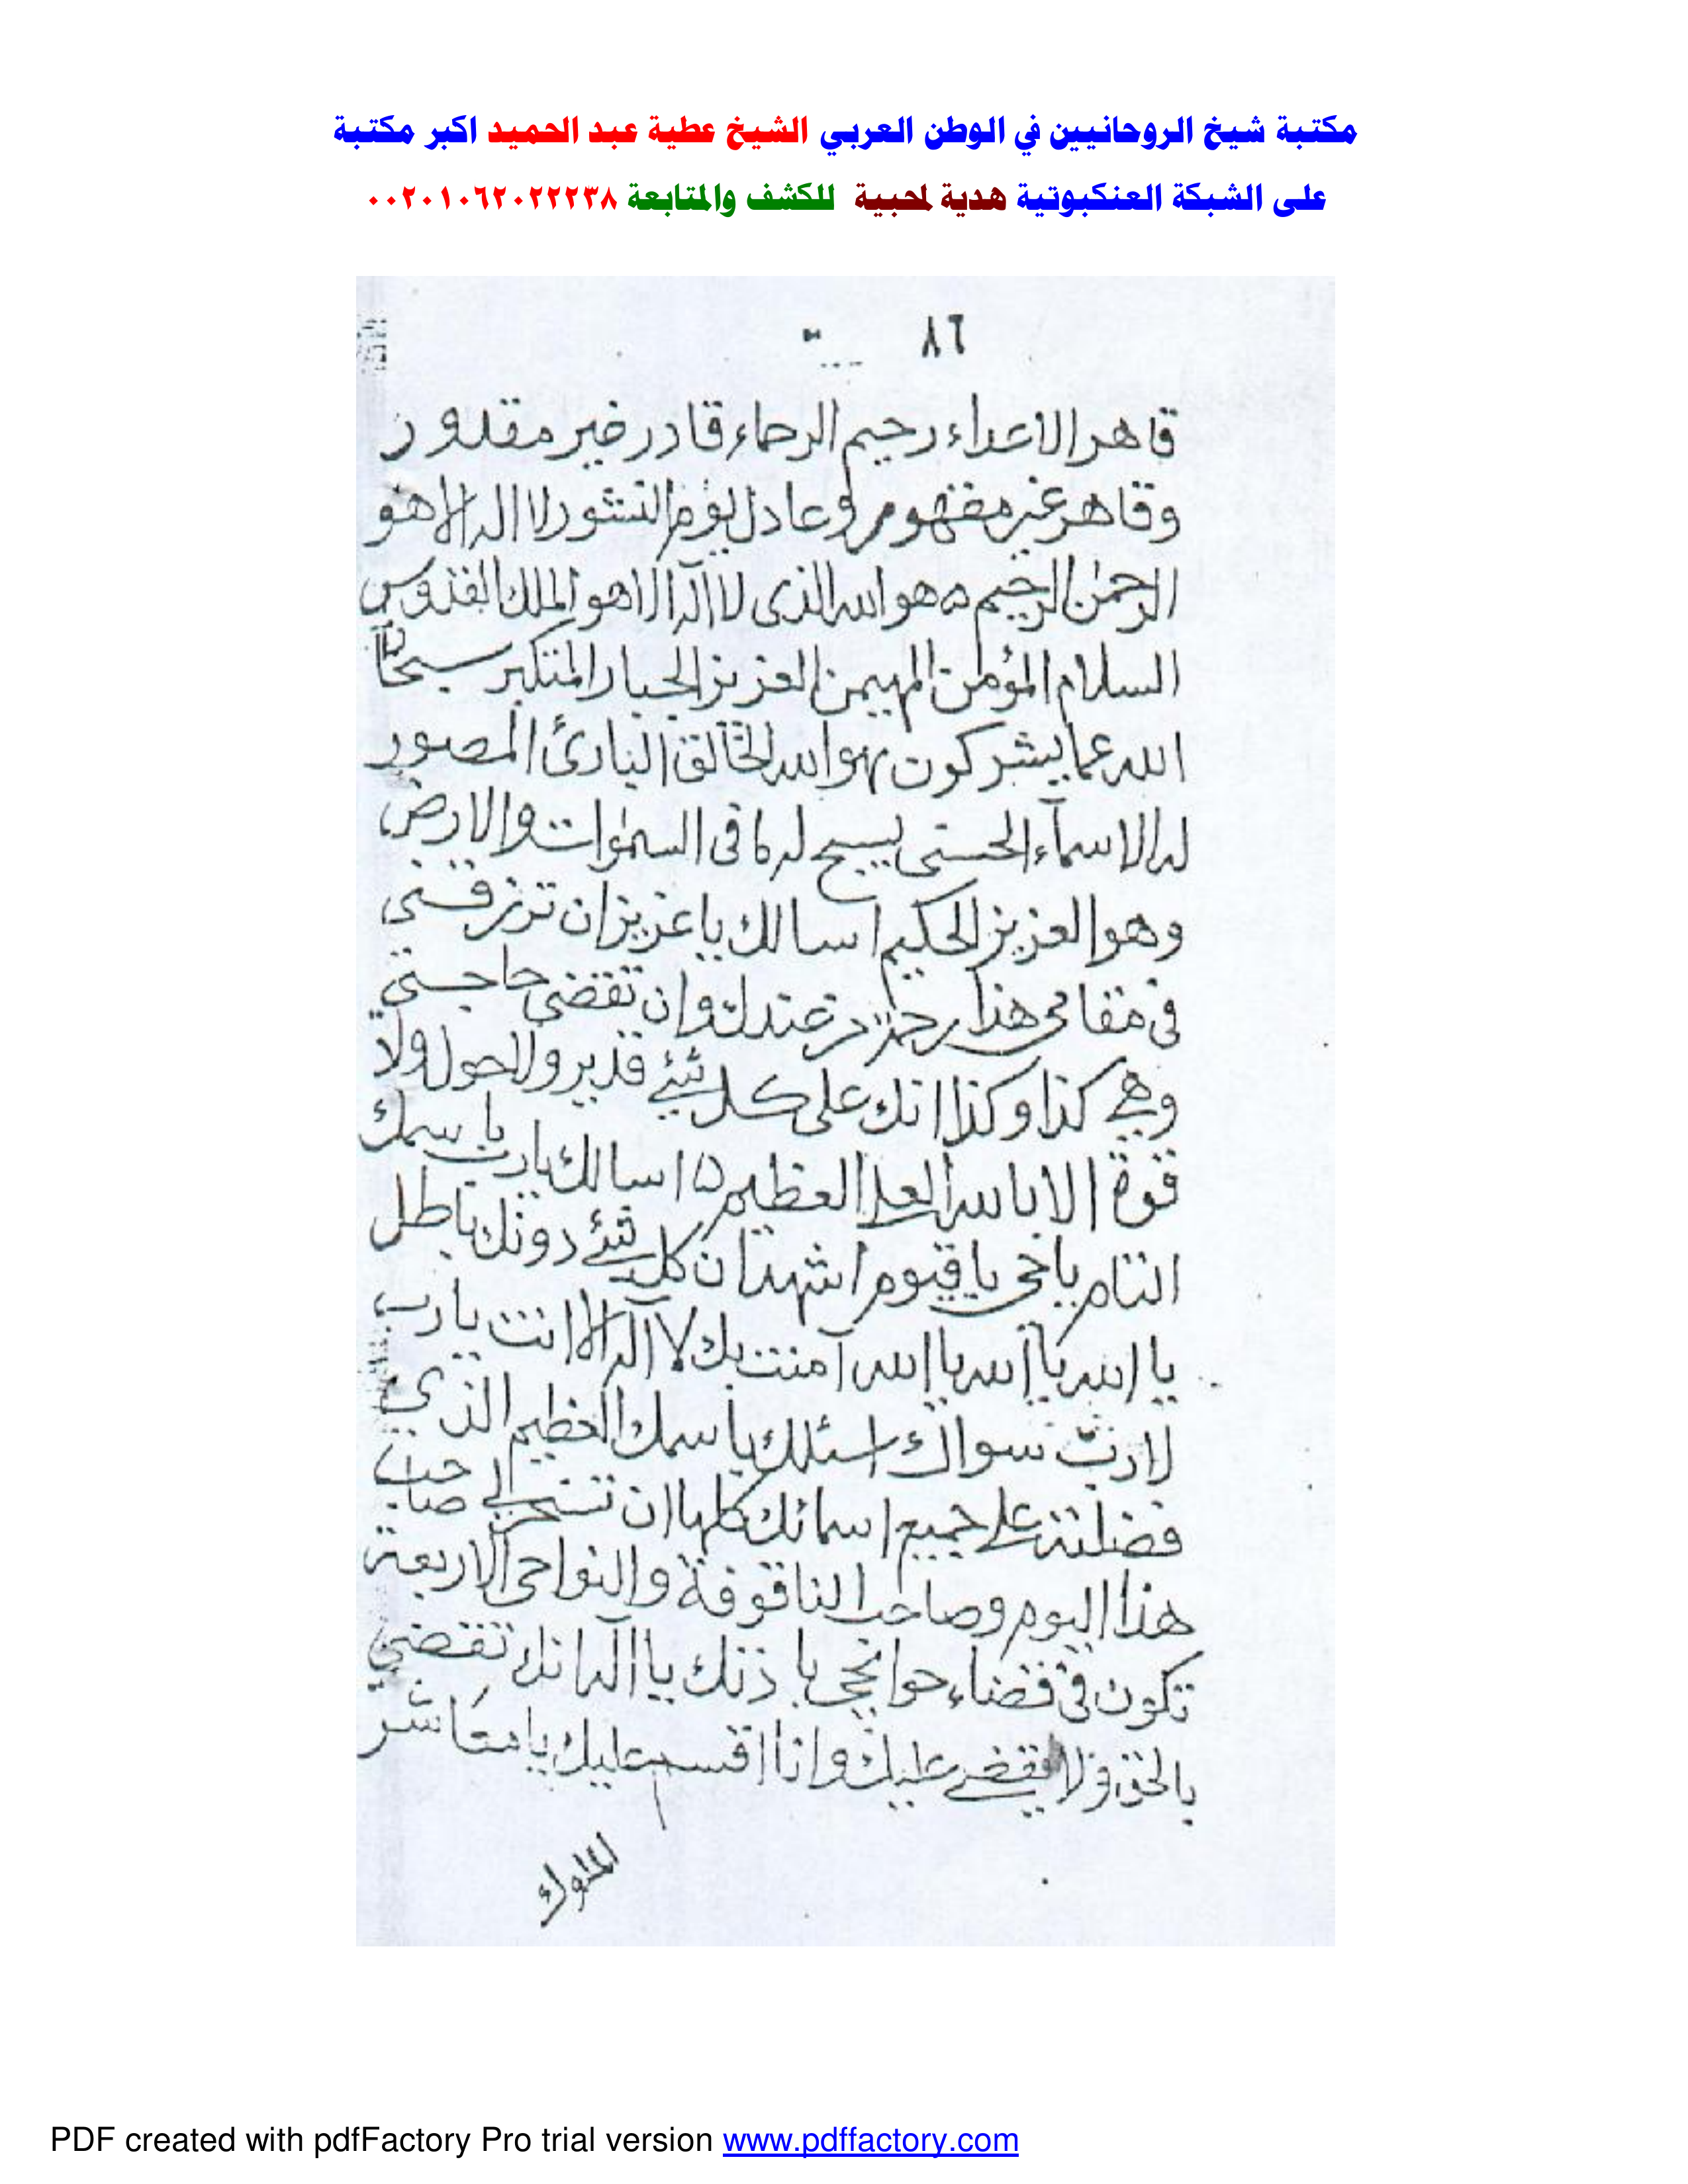 مكتبة شيخ الروحانيين في الوطن العربي الشيخ عطية عبد الحميد اكبر مكتبة
على الشبكة العنكبوتية هدية لمحبية للكشف والمتابعة ٠٠٢٠١٠٦٢٠٢٢٢٣٨
٨٦
قاهر الاعداء رحيم الرحماء قادر غير مقدور
وقاهر غير مقهور وعادل يوم النشور لا اله الا هو
الرحمن الرحيم ه هو الله الذى لا اله الا هو الملك القدوس
السلام المؤمن المهيمن العزيز الجبار المتكبر سبحان
الله عما يشركون هو الله الخالق البارئ المصور
له الاسمآء الحسنى يسبح له ما فى السموات والارض
وهو العزيز الحكيم اسالك يا عزيز ان ترزقنى
فى مقامى هذا رحمة من عندك وان تقضى حاجتى
وهى كذا وكذا انك على كل شئ قدير ولا حول ولا
قوة الا بالله العلى العظيم ه اسالك يا رب باسمك
التام يا حى يا قيوم اشهد ان كل شئ دونك باطل
يا الله يا الله يا الله آمنت بك لا اله الا انت يا رب
لا رب سواك اسئلك باسمك العظيم الذي
فضلته على جميع اسمائك كلها ان تسخر لى صاحب
هذا اليوم وصاحب النواحى الاربعة
تكون فى قضاء حوائجى باذنك يا اله انك تقضى
بالحق ولا يقضى عليك وانا اقسم عليك يا معاشر
الملوك
PDF created with pdfFactory Pro trial version www.pdffactory.com